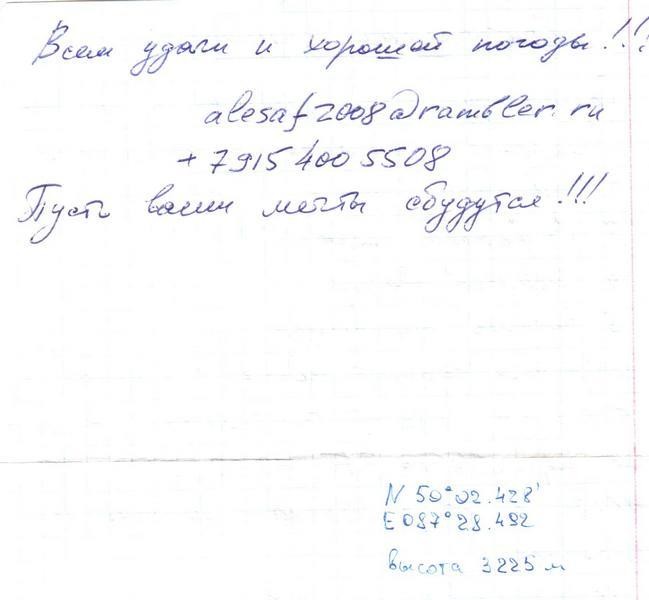 Всем удачи и хорошей погоды!!!
alesaf2008@rambler.ru
+79154005508
Пусть ваши мечты сбудутся!!!
N 50°02.428'
E 087°28.492
высота 3225 м